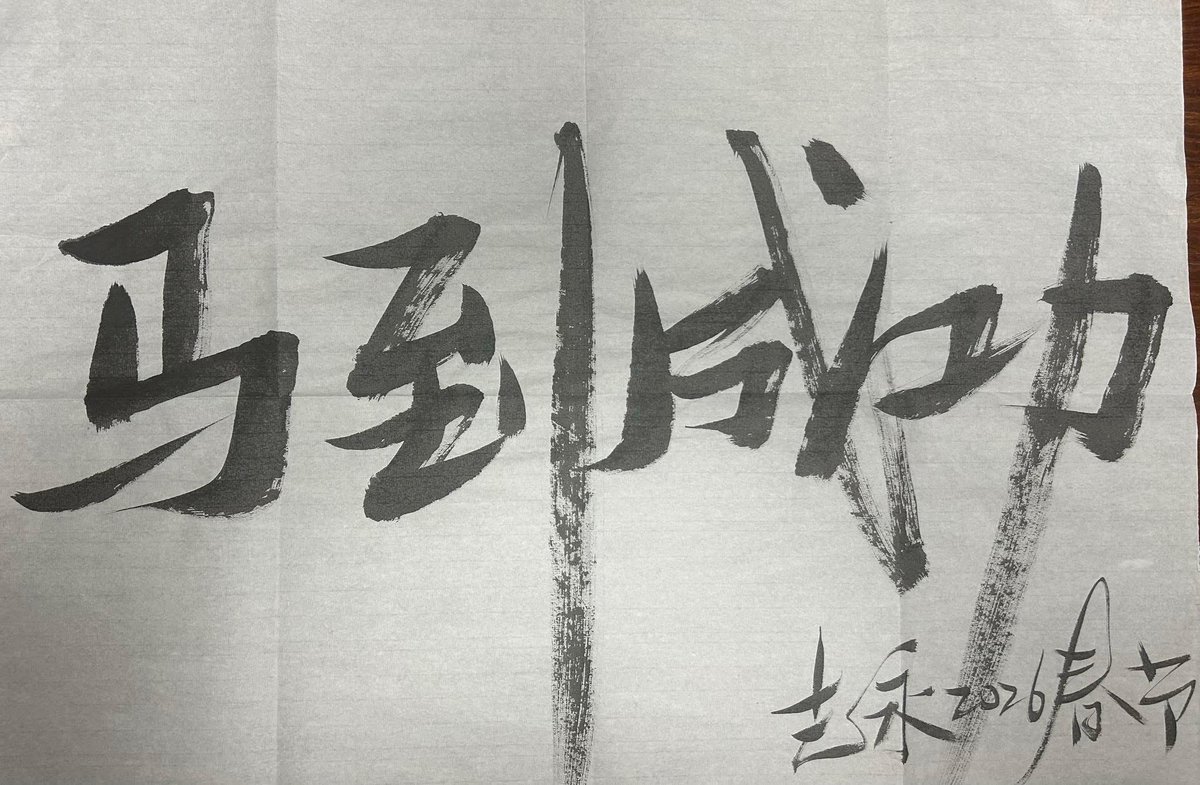 马到成功
志永2026春节